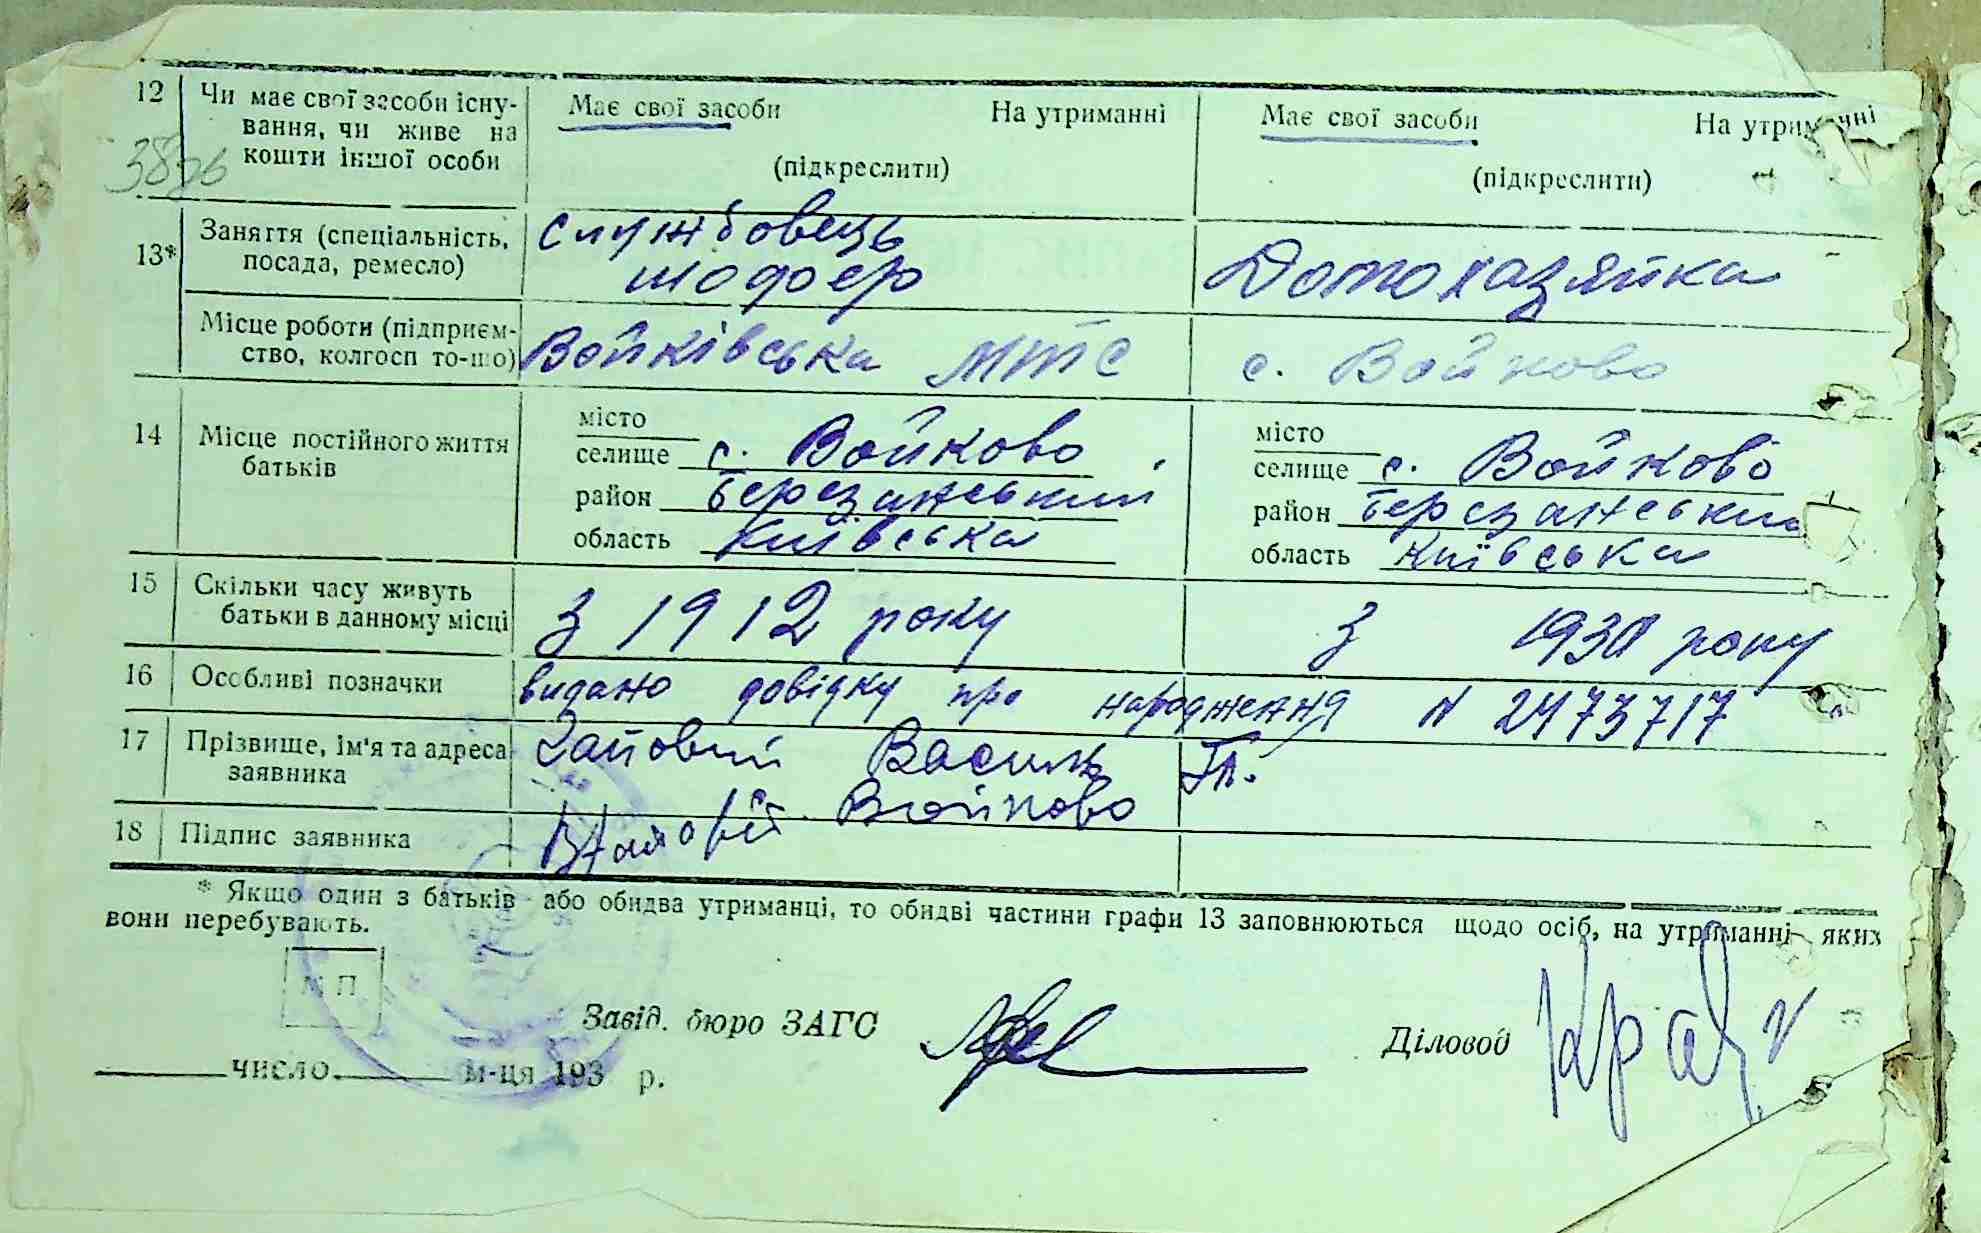 12 Чи має свої засоби існу- Має свої засоби На утриманні Має свої засоби На утриманні
вання, чи живе на
кошти іншої особи (підкреслити) (підкреслити)
13* Заняття (спеціальність, службовець
посада, ремесло) шофер Домохазяйка
Місце роботи (підприєм-
ство, колгосп то-що) Войківська МТС с. Войково
14 Місце постійного життя місто місто
батьків селище с. Войково селище с. Войково
район Березанський район Березанський
область Київська область Київська
15 Скільки часу живуть
батьки в данному місці з 1912 року з 1930 року
16 Особливі позначки видано довідку про народження N 2473717
17 Прізвище, ім'я та адреса Василь Гл.
заявника с. Войково
18 Підпис заявника
* Якщо один з батьків або обидва утриманці, то обидві частини графи 13 заповнюються щодо осіб, на утриманні яких
вони перебувають.
М П
Завід. бюро ЗАГС Діловод
число м-ця 193 р.